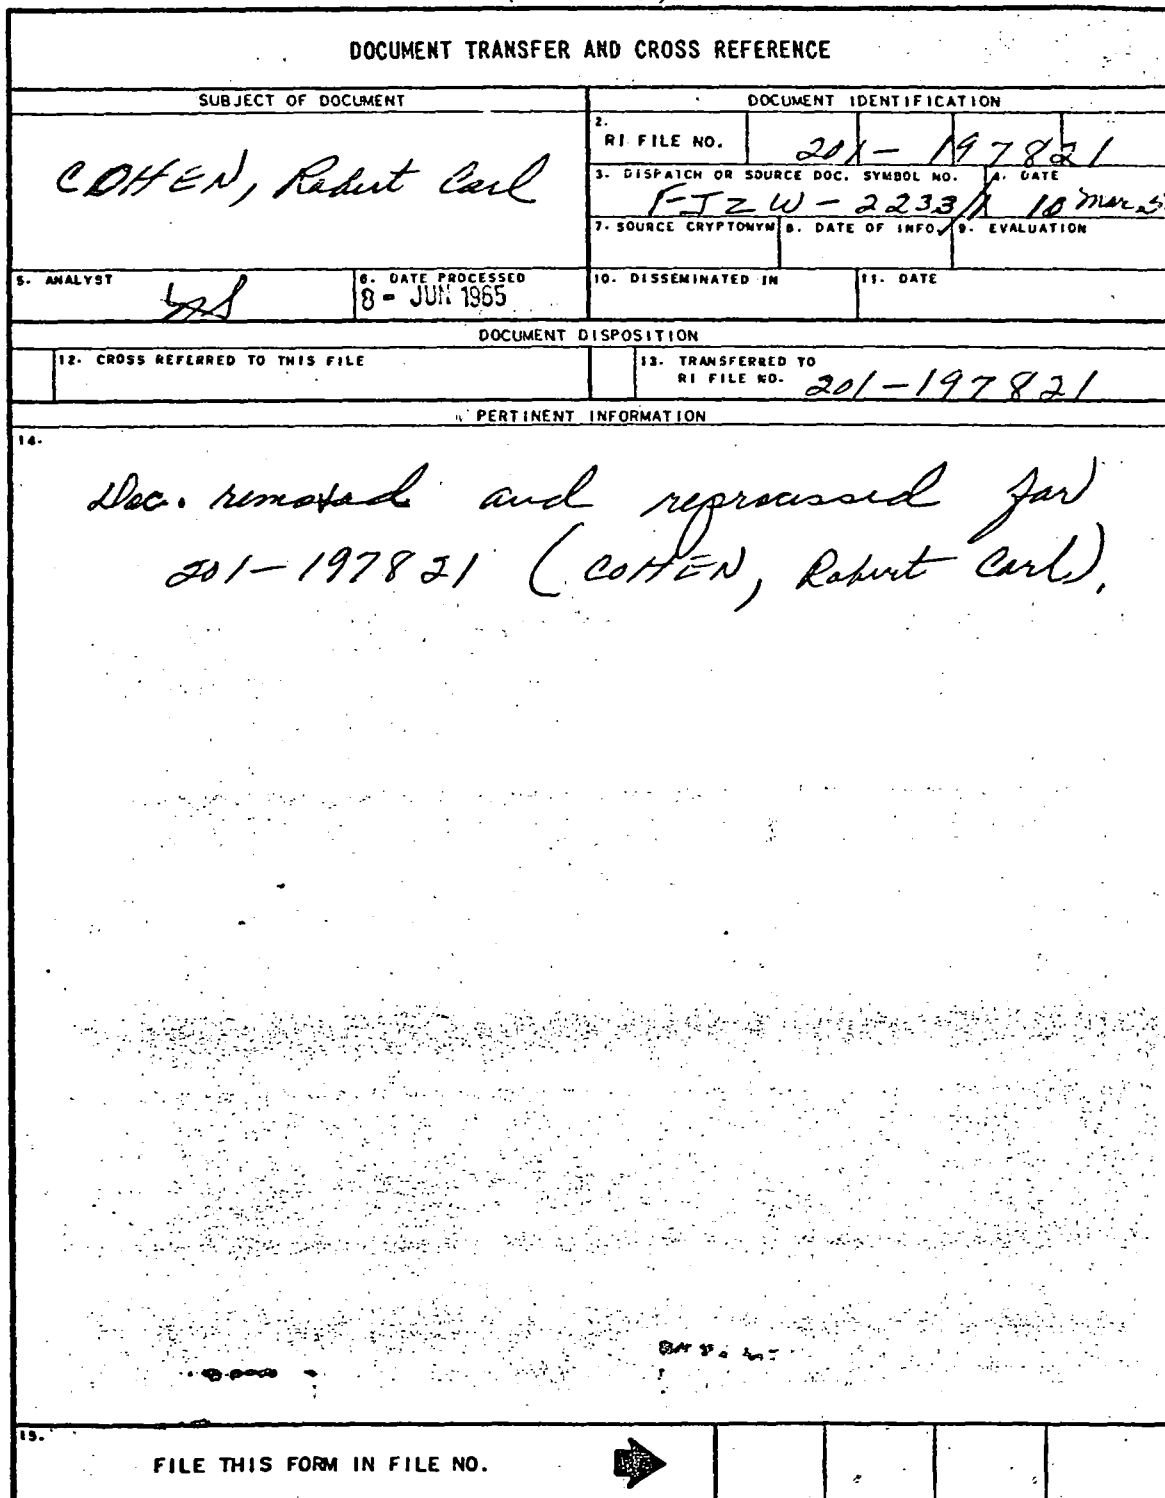 DOCUMENT TRANSFER AND CROSS REFERENCE
SUBJECT OF DOCUMENT
DOCUMENT IDENTIFICATION
COHEN, Robert Carl
2.
RI FILE NO.
201-197821
3. DISPATCH OR SOURCE DOC. SYMBOL NO.
4. DATE
FJZW-2233
10 Mar
7. SOURCE CRYPTONYM
8. DATE OF INFO.
9. EVALUATION
5. ANALYST
6. DATE PROCESSED
8- JUN 1965
10. DISSEMINATED IN
11. DATE
DOCUMENT DISPOSITION
12. CROSS REFERRED TO THIS FILE
13. TRANSFERRED TO
RI FILE NO.
201-197821
PERTINENT INFORMATION
14.
Doc. removed and reprocessed for
201-197821 (COHEN, Robert Carl).
15.
FILE THIS FORM IN FILE NO.